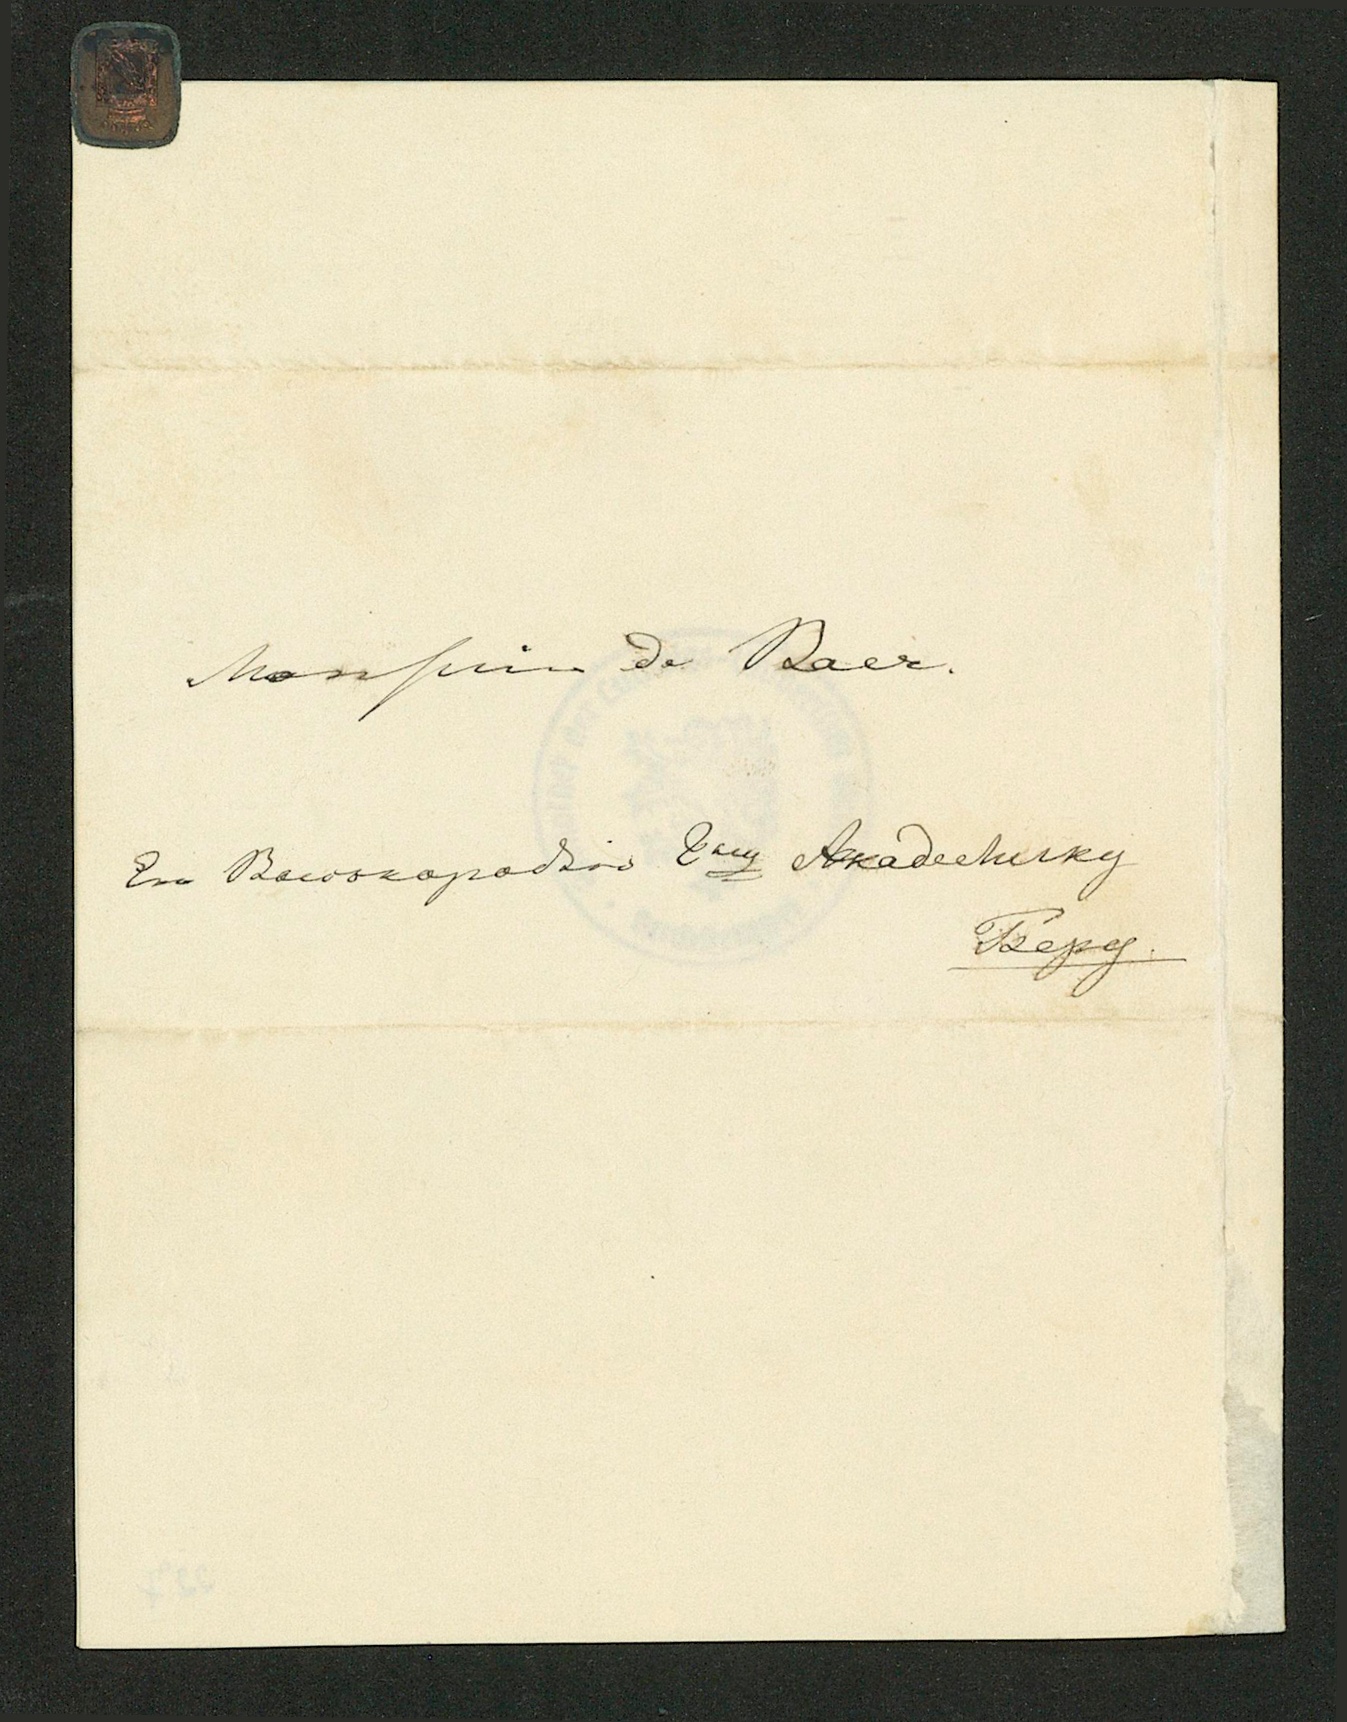 Monsieur de Baer.
Его Высокородію Гну Академику
Беру.